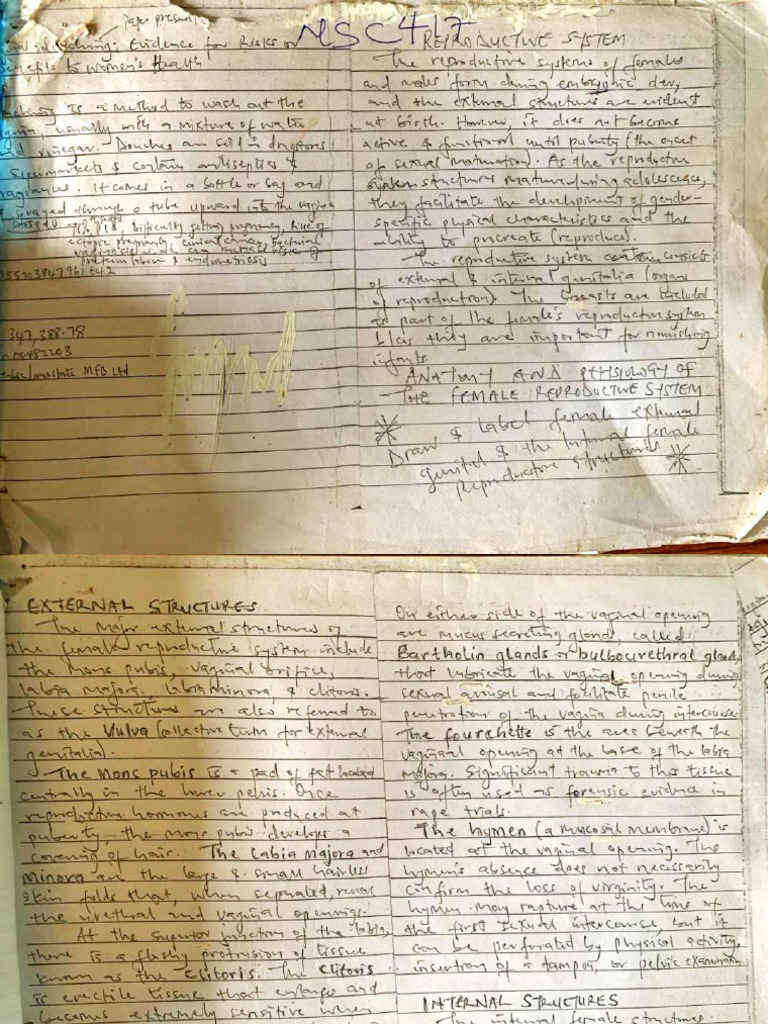 Paper present
NSC417
douching: Evidence for Risks or
Benefits to women's Health
is a method to wash out the
usually with a mixture of water
and vinegar. Douches are sold in drugstores
& supermarkets & contain antiseptics &
fragrances. It comes in a bottle or bag and
sprayed through a tube upward into the vagina
Difficulty getting pregnancy,
ectopic pregnancy, cervical cancer, bacterial
preterm labour & endometriosis
347,388.78
MFB Ltd
REPRODUCTIVE SYSTEM
The reproductive systems of females
and males form during embryonic dev,
and the external structures are evident
at birth. However, it does not become
active & functional until puberty (the onset
of sexual maturation). As the reproductive
system structures mature during adolescence,
they facilitate the development of gender-
specific physical characteristics and the
ability to procreate (reproduce).
The reproductive system consists
of external & internal genitalia (organ
of reproduction). The breasts are included
as part of the female's reproductive system
b/cos they are important for nourishing
infants.
ANATOMY AND PHYSIOLOGY OF
THE FEMALE REPRODUCTIVE SYSTEM
Draw & label female external
genital & the internal female
Reproductive structures
EXTERNAL STRUCTURES
The major external structures of
the female reproductive system include
the mons pubis, vaginal orifice,
labia majora, labia minora, & clitoris.
These structures are also referred to
as the Vulva (collective term for external
genitalia).
The mons pubis is a pad of fat located
centrally in the lower pelvis. Once
reproductive hormones are produced at
puberty, the mons pubis develops a
covering of hair. The Labia Majora and
Minora are the large & small hairless
skin folds that, when separated, reveal
the urethral and vaginal openings.
At the superior junction of the labia,
there is a fleshy protrusion of tissue
known as the Clitoris. The Clitoris
is erectile tissue that enlarges and
becomes extremely sensitive when
On either side of the vaginal opening
are mucus secreting glands, called
Bartholin glands or bulbourethral glands,
that lubricate the vaginal opening during
sexual arousal and facilitate penile
penetration of the vagina during intercourse.
The fourchette is the area beneath the
vaginal opening at the base of the labia
majora. Significant trauma to this tissue
is often used as forensic evidence in
rape trials.
The hymen (a mucosal membrane) is
located at the vaginal opening. The
hymen's absence does not necessarily
confirm the loss of virginity. The
hymen may rapture at the time of
the first sexual intercourse, but it
can be perforated by physical activity,
insertion of a tampon, or pelvic examination.
INTERNAL STRUCTURES
The internal female structures